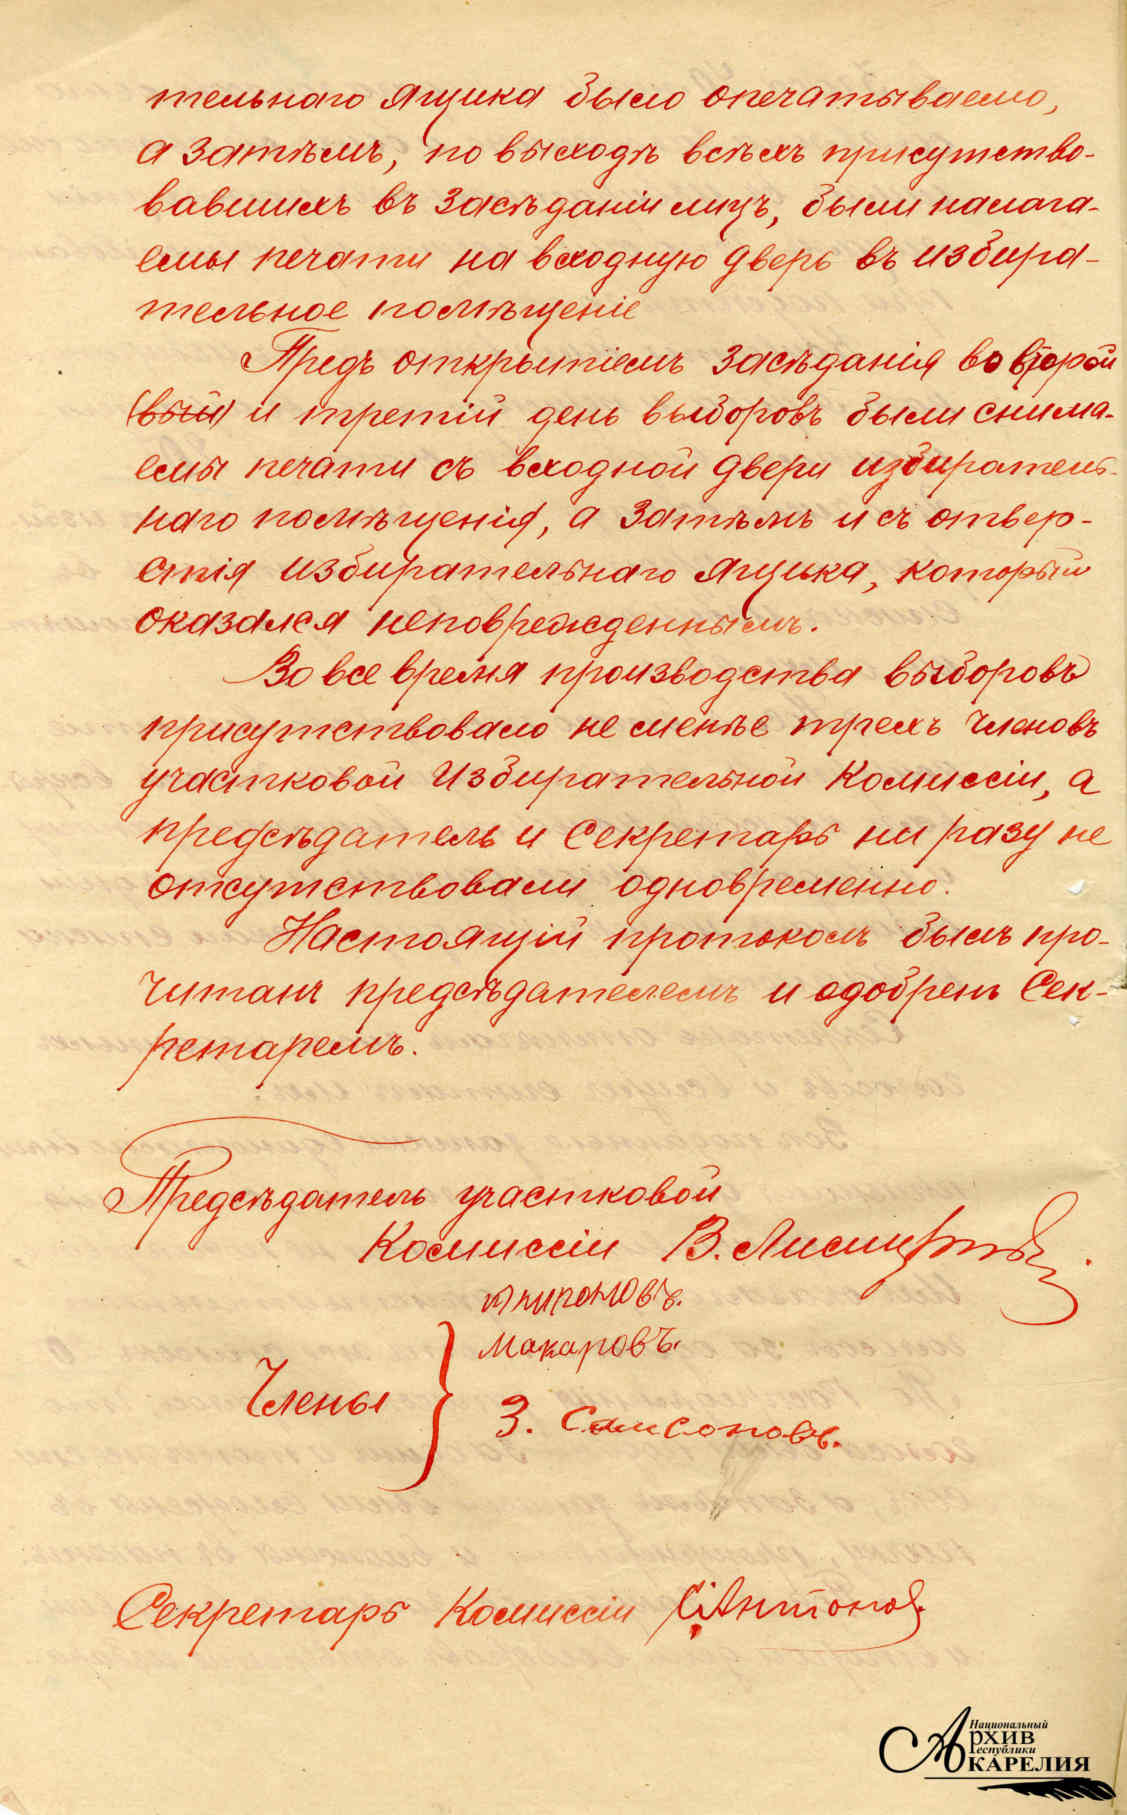 тельнаго ящика было опечатываемо,
а затѣмъ, по выходѣ всѣхъ присутство-
вавшихъ въ засѣданіи лицъ, были налага-
емы печати на входную дверь въ избира-
тельное помѣщеніе
Предъ открытіемъ засѣданія во второй
(вый) и третій день выборовъ были снима-
емы печати съ входной двери избиратель-
наго помѣщенія, а затѣмъ и съ отвер-
стія избирательнаго ящика, который
оказался неповрежденнымъ.
Во все время производства выборовъ
присутствовало не менѣе трехъ членовъ
участковой Избирательной Комиссіи, а
предсѣдатель и Секретарь ни разу не
отсутствовали одновременно.
Настоящій протоколъ былъ про-
читанъ предсѣдателемъ и одобренъ Сек-
ретаремъ.
Предсѣдатель участковой
Комиссіи В.
Члены
Макаровъ.
З. Самсоновъ.
Секретарь Комиссіи С. Антонов.
Национальный
АРХИВ
Республики
КАРЕЛИЯ